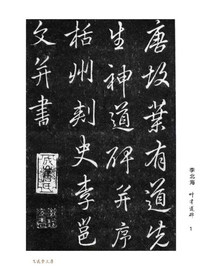 唐故葉有道先
生神道碑并序
括州刺史李邕
文并書
李北海
葉有道碑